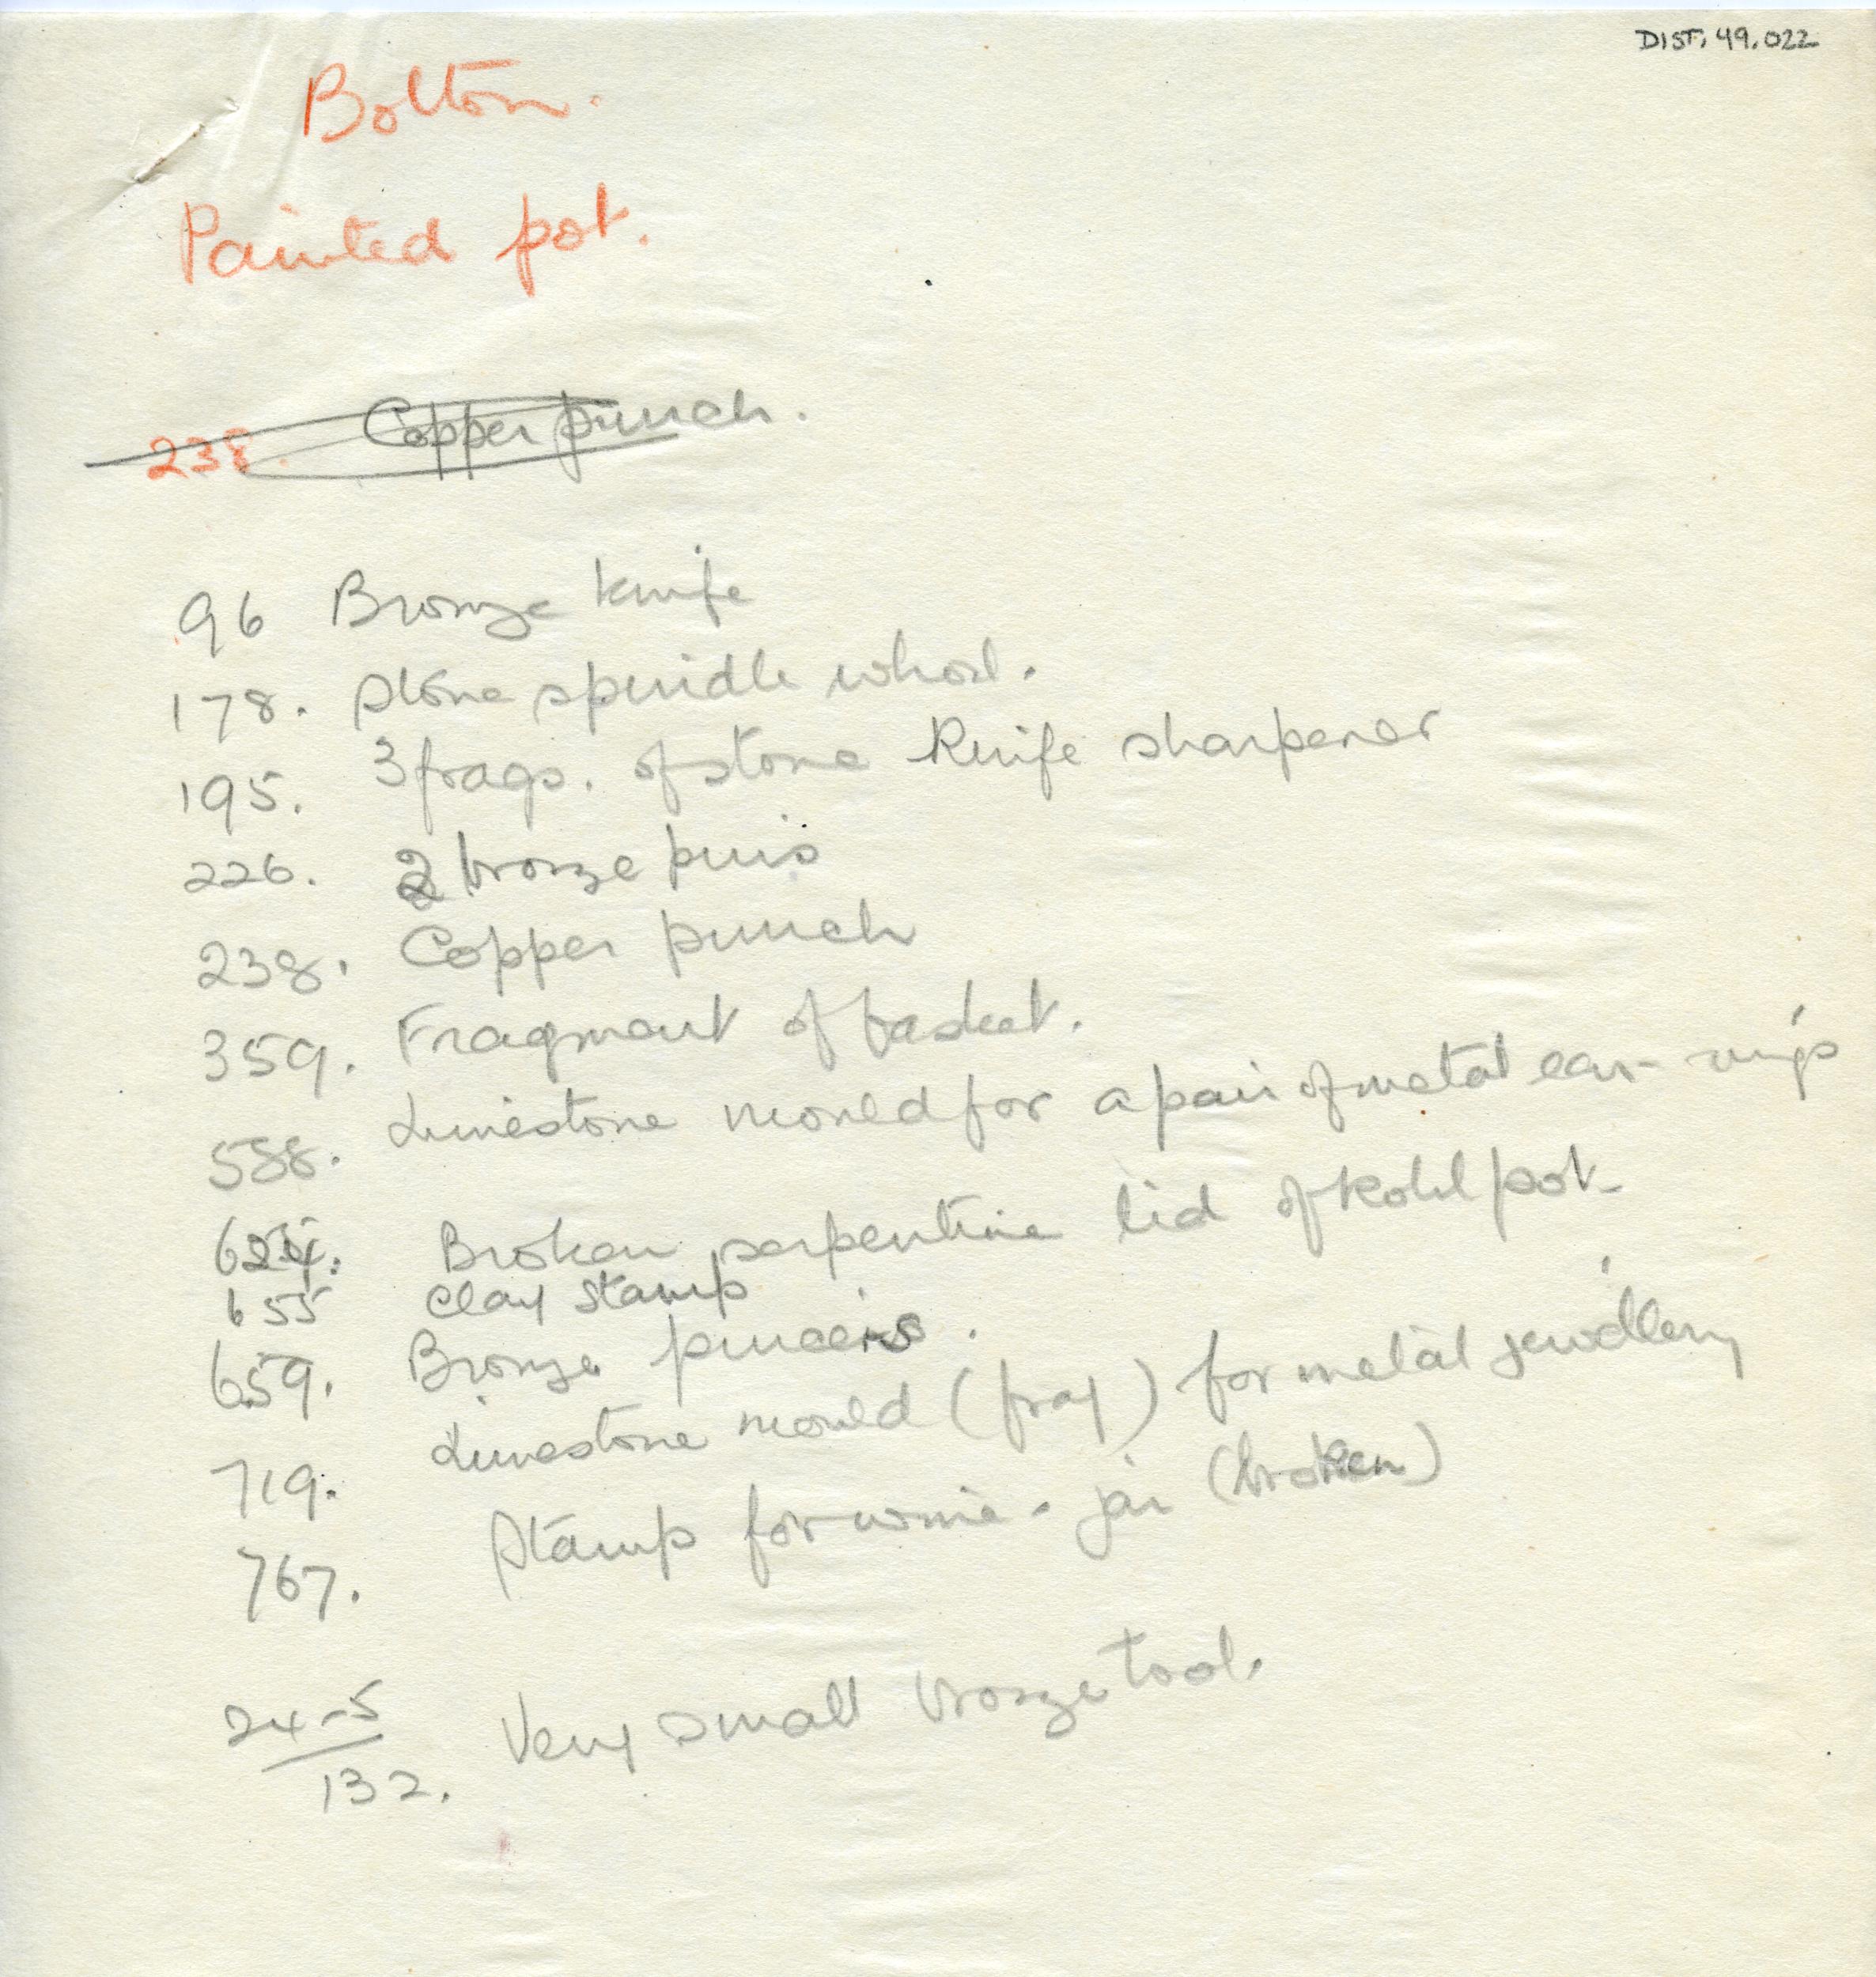 DIST. 49.022
Bolton.
Painted pot.
238. Copper punch.
96 Bronze knife
178. Stone spindle whorl.
195. 3 frags. of stone Knife sharpener
226. 2 bronze pins
238. Copper punch
359. Fragment of basket.
588. Limestone mould for a pair of metal ear-rings
624. Broken serpentine lid of Kohl pot-
655 Clay stamp
659. Bronze pincers.
719. Limestone mould (frag) for metal jewellery
767. Stamp for wine-jar (broken)
24-5
132. Very small bronze tool.